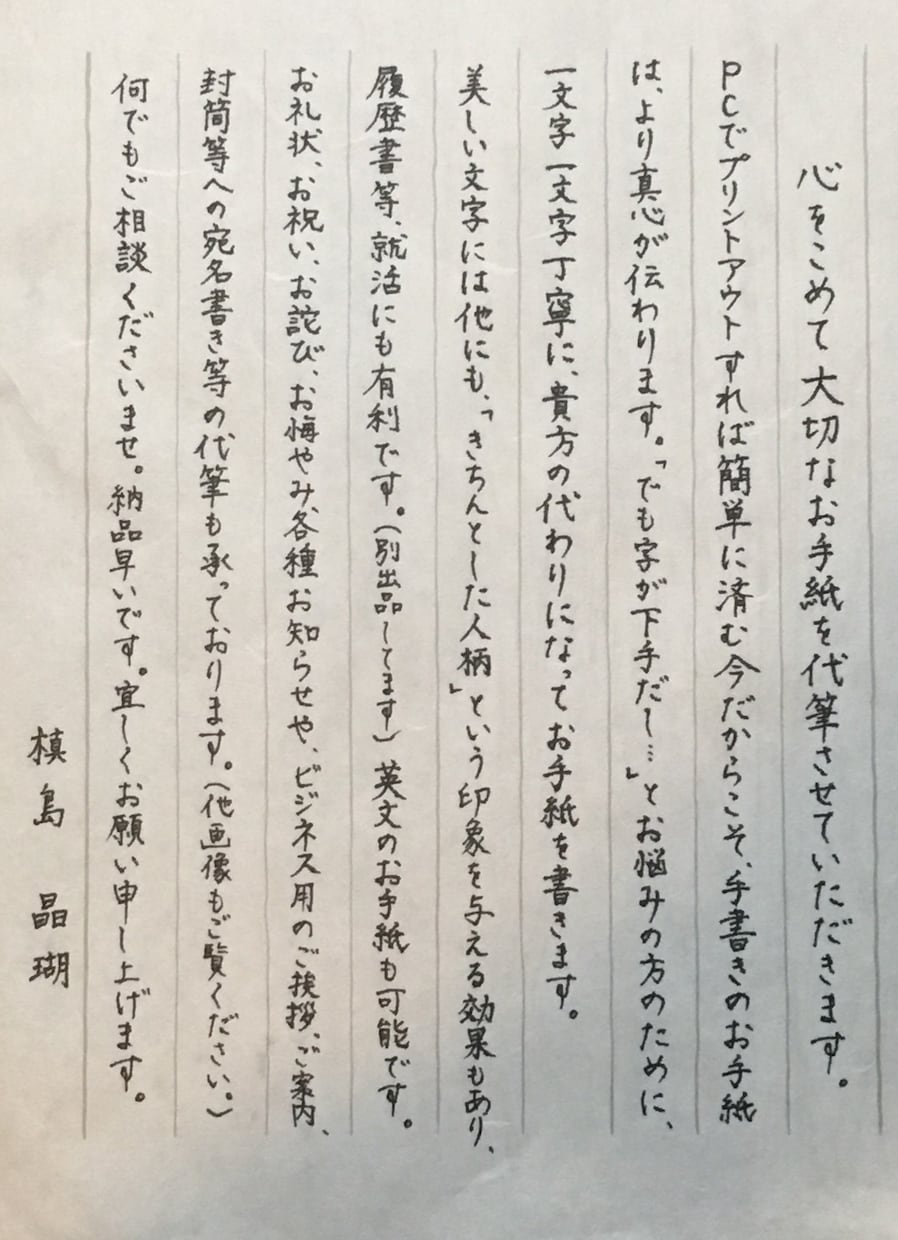 心をこめて大切なお手紙を代筆させていただきます。
PCでプリントアウトすれば簡単に済む今だからこそ、手書きのお手紙
は、より真心が伝わります。「でも字が下手だし…」とお悩みの方のために、
一文字一文字丁寧に、貴方の代わりになってお手紙を書きます。
美しい文字には他にも、「きちんとした人柄」という印象を与える効果もあり、
履歴書等、就活にも有利です。(別出品してます)英文のお手紙も可能です。
お礼状、お祝い、お詫び、お悔やみ各種お知らせや、ビジネス用のご挨拶、ご案内、
封筒等への宛名書き等の代筆も承っております。(他画像もご覧ください。)
何でもご相談くださいませ。納品早いです。宜しくお願い申し上げます。
槙島 晶瑚